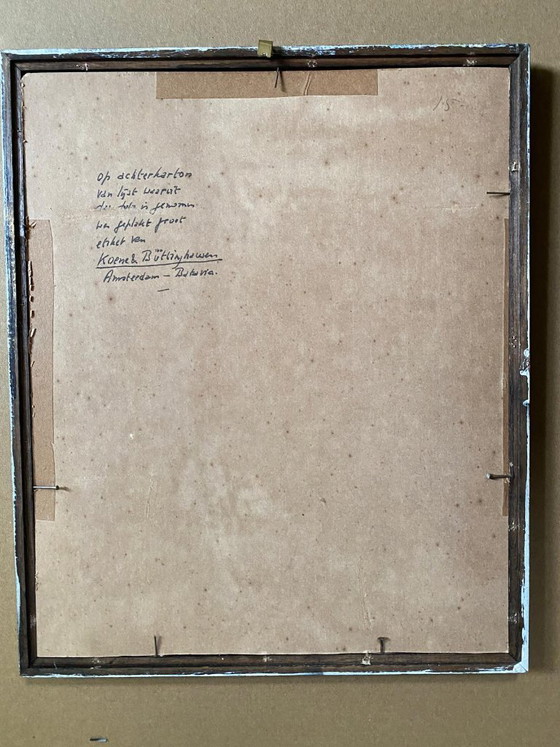 15
Op achterkarton
van lijst waaruit
foto is genomen
was geplakt groot
etiket van
Koene & Büttinghausen
Amsterdam – Batavia.